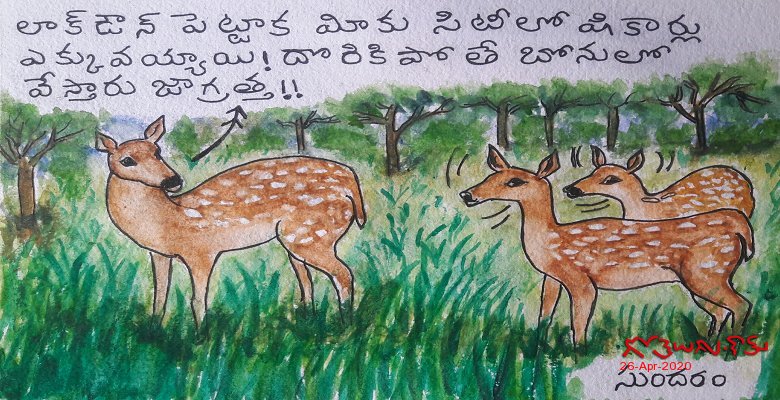 లాక్ డౌన్ పెట్టాక మీకు సిటీలో షికార్లు
ఎక్కువయ్యాయి! దొరికిపోతే బోనులో
వేస్తారు జాగ్రత్త!!
గోతెలుగు.కామ్
26-Apr-2020
సుందరం